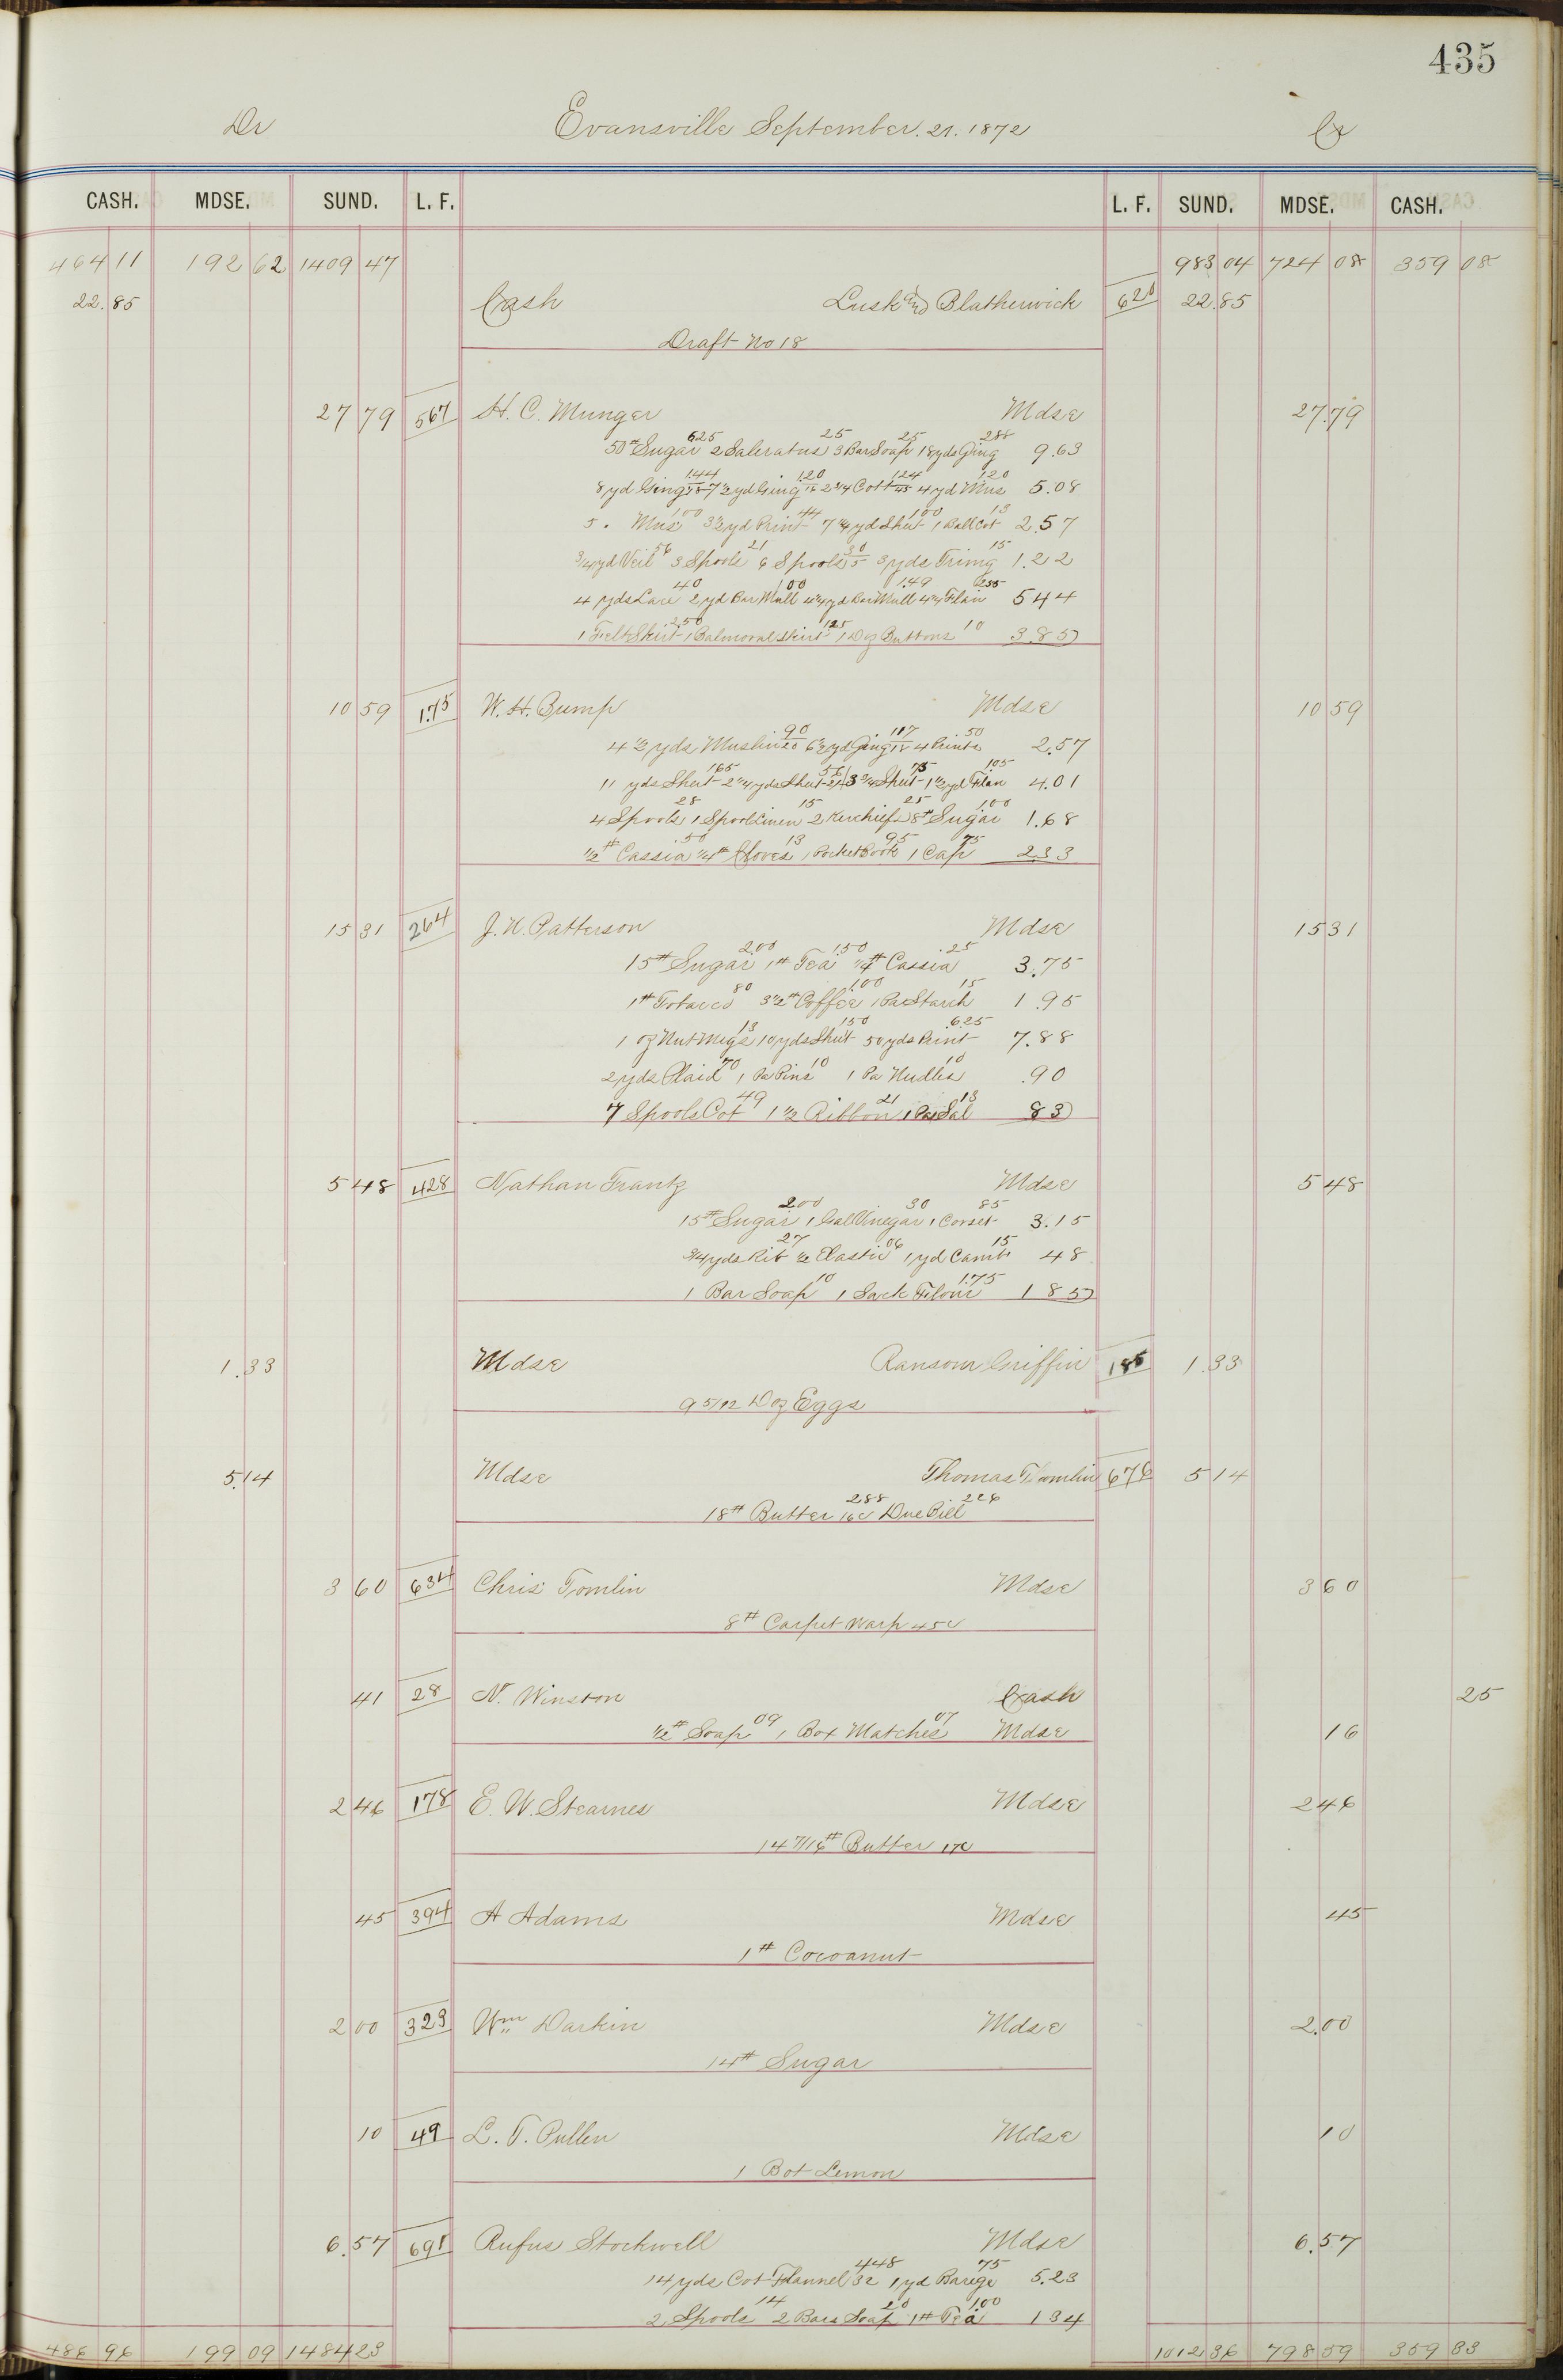 435
Dr Evansville September. 21. 1872 Cr
CASH. MDSE. SUND. L. F. L. F. SUND. MDSE. CASH.
464 11 192 62 1409 47 983 04 724 08 359 08
22.85 Cash Lusk and Blatherwick 620 22.85
Draft No 18
27 79 567 H. C. Munger Mdse 27.79
625 25 25 288
50# Sugar 2 Saleratus 3 Bar Soap 18 yds Ging 9.63
144 120 124 120
8 yd Ging 18 7 1/2 yd Ging 16 2 3/4 Cott 45 4 yd Mus 5.08
100 44 100 13
5 . Mus 3 1/2 yd Print 7 1/4 yd Shirt 1 Ball Cot 2.57
56 21 30 15
3/4 yd Veil 3 Spools 6 Spools 5 3 yds Trimg 1.22
40 100 1.49 255
4 yds Lace 2 yd Bar Mull 4 1/4 yd Bar Mull 4 1/4 Flan 5 44
2.50 125 10
1 Felt Skirt 1 Balmoral Skirt 1 Doz Buttons 3.85
10 59 175 W. H. Bump Mdse 10 59
90 117 50
4 1/2 yds Muslin 20 6 1/2 yd Ging 18 4 Prints 2.57
165 56 75 .105
11 yds Shirt 2 1/4 yds Shirt 3 3/4 Shirt 1 1/2 yd Flan 4.01
28 15 25 100
4 Spools 1 Spool Linen 2 Kerchiefs 8# Sugar 1.68
.50 13 95 75
1/2# Cassia 1/4# Cloves 1 Pocket Book 1 Cap 2.33
15 31 264 J. N. Patterson Mdse 15 31
200 150 .25
15# Sugar 1# Tea 1/4# Cassia 3.75
80 .100 15
1# Tobacco 3 1/2# Coffee 1 Pa Starch 1.95
13 150 .625
1 oz Nutmegs 10 yds Shirt 50 yds Print 7.88
70 10 10
2 yds Plaid 1 Pa Pins 1 Pa Nudles .90
49 21 13
7 Spools Cot 1 1/2 Ribbon 1 Pa Sal 83
5 48 428 Nathan Frantz Mdse 5 48
200 30 85
15# Sugar 1 Gal Vinegar 1 Corset 3.15
27 06 15
3/4 yds Rib 1/2 Elastic 1 yd Camb 48
10 1.75
1 Bar Soap 1 Sack Flour 1 85
1.33 Mdse Ransom Griffin 186 1.33
9 5/12 Doz Eggs
5.14 Mdse Thomas Tomlin 676 5 14
288 226
18# Butter 16c Due Bill
3 60 634 Chris Tomlin Mdse 3 60
8# Carpet Warp 45c
41 28 N. Winston Cash 25
09 07
1/2# Soap 1 Box Matches Mdse 16
2 46 178 E. W. Stearnes Mdse 2 46
14 7/16# Butter 17c
45 394 A Adams Mdse 45
1# Cocoanut
2 00 323 Wm Darkin Mdse 2.00
14# Sugar
10 49 L. T. Pullen Mdse 10
1 Bot Lemon
6.57 691 Rufus Stockwell Mdse 6.57
448 75
14 yds Cot Flannel 32 1 yd Barege 5.23
14 20 1.00
2 Spools 2 Bars Soap 1# Tea 1 34
486 96 199 09 1484 23 1012 36 798 59 359 33